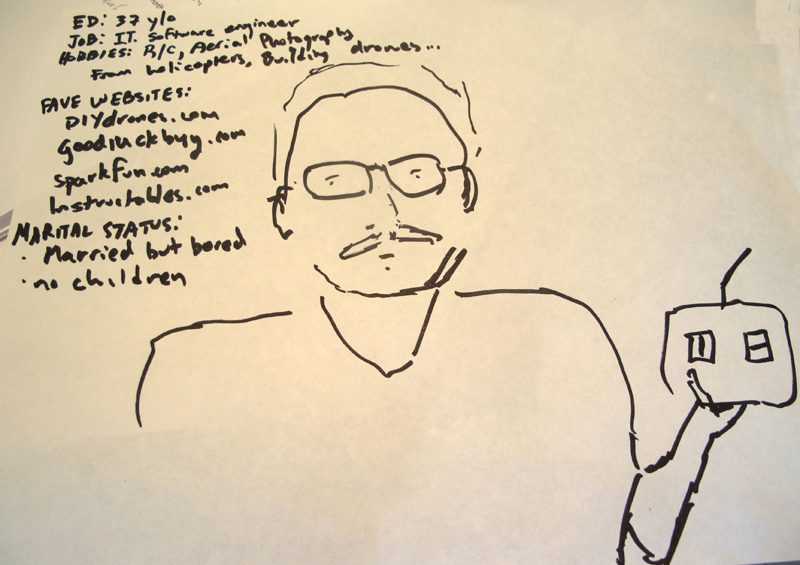 ED: 37 y/o
JOB: I.T. Software engineer
HOBBIES: R/C, Aerial Photography
From helicopters, Building drones...
FAVE WEBSITES:
DIYdrones.com
goodluckbuy.com
sparkfun.com
Instructables.com
MARITAL STATUS:
· Married but bored
· no children